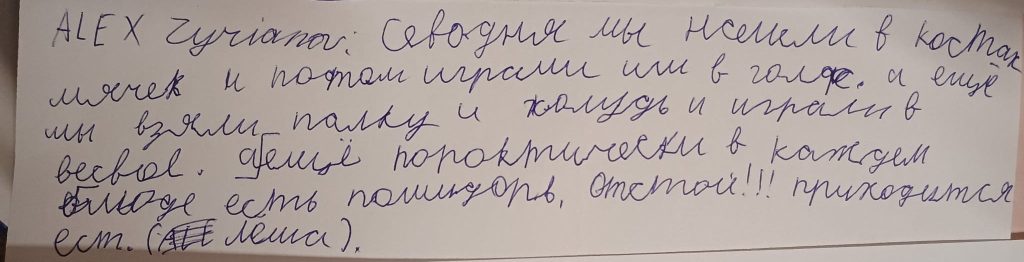 ALEX Zyrianov: Севодня мы нашли в костах
мячек и потом играми им в голф. а ещё
мы взяли палку и жолудь и играли в
бесбол. а ещё порактически в каждем
блюде есть помидорв, отстой!!! приходится
ест. (Лёша).